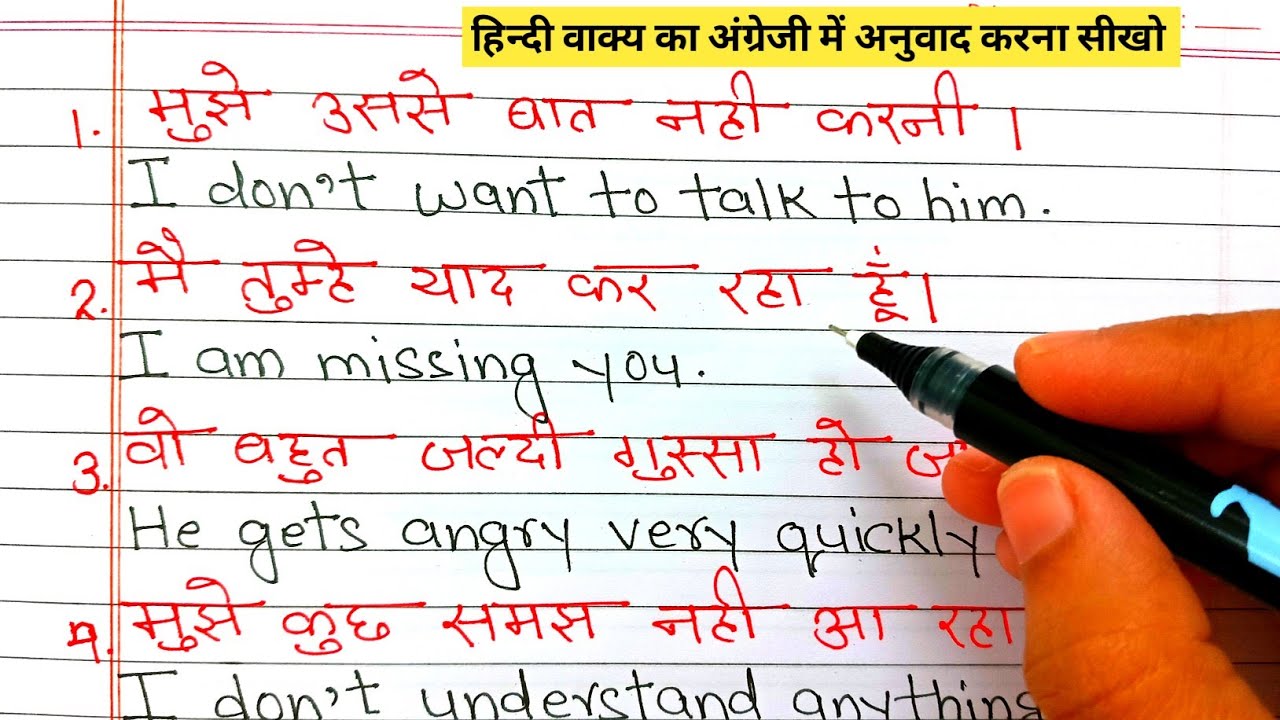 हिन्दी वाक्य का अंग्रेजी में अनुवाद करना सीखो
1. मुझे उससे बात नही करनी।
I don't want to talk to him.
2. मै तुम्हे याद कर रहा हूँ।
I am missing you.
3. वो बहुत जल्दी गुस्सा हो
He gets angry very quickly
4. मुझे कुछ समझ नही आ रहा
I don't understand anything